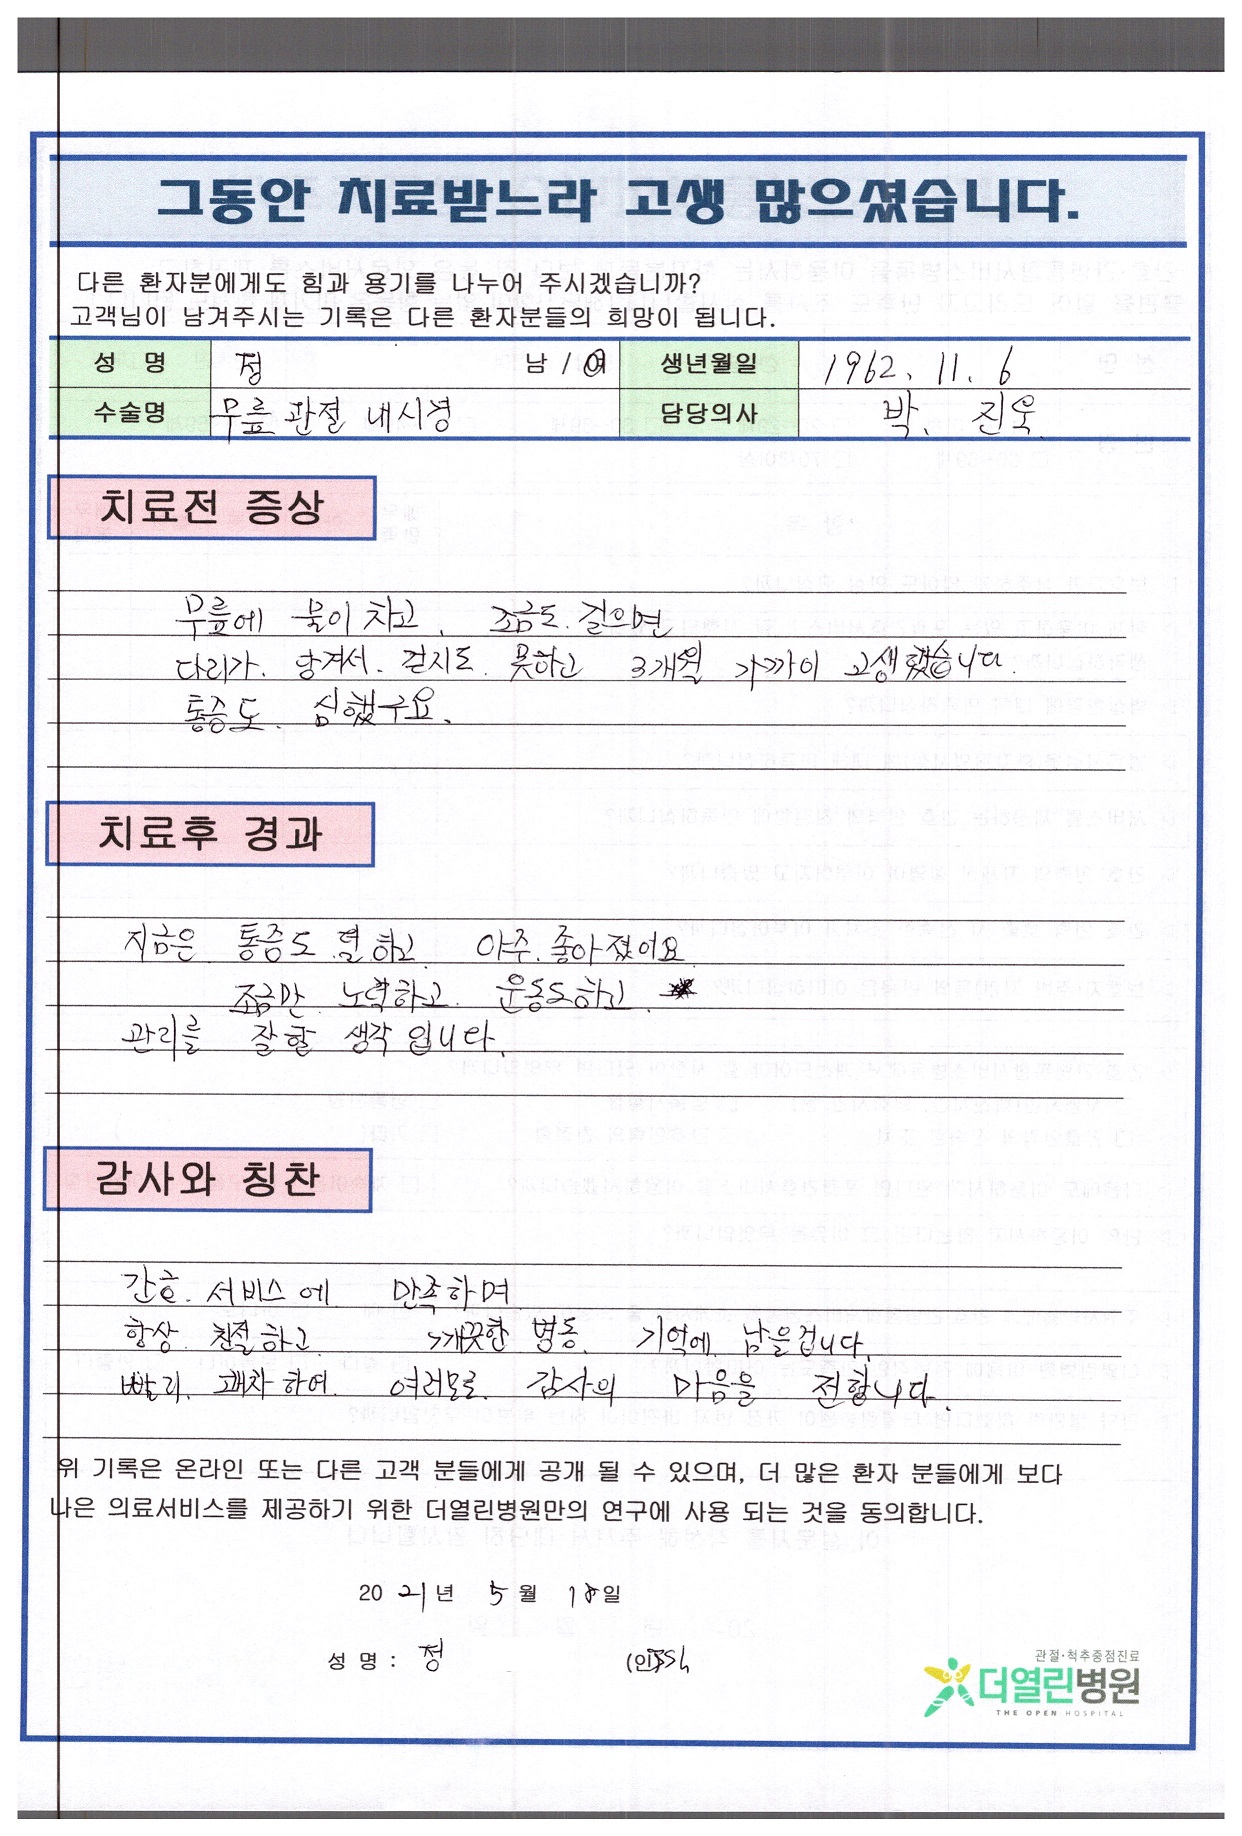 그동안 치료받느라 고생 많으셨습니다.
다른 환자분에게도 힘과 용기를 나누어 주시겠습니까?
고객님이 남겨주시는 기록은 다른 환자분들의 희망이 됩니다.
성 명 정 남 / 여 생년월일 1962. 11. 6
수술명 무릎 관절 내시경 담당의사 박. 진욱.
치료전 증상
무릎에 물이 차고. 조금도. 걸의면
다리가. 당겨서. 걷지도. 못하고 3개월 가까이 고생했습니다.
통증도. 심했구요.
치료후 경과
지금은. 통증도. 덜.하고. 아주. 좋아졌어요
조금만. 노력하고. 운동도하고.
관리를 잘할 생각입니다.
감사와 칭찬
간호. 서비스에 만족하며
항상. 친절하고. 깨끗한 병동. 기억에. 남을겁니다.
빨리. 쾌차하여. 여러모로. 감사의 마음을 전합니다.
위 기록은 온라인 또는 다른 고객 분들에게 공개 될 수 있으며, 더 많은 환자 분들에게 보다
나은 의료서비스를 제공하기 위한 더열린병원만의 연구에 사용 되는 것을 동의합니다.
2021년 5월 18일
성 명 : 정 (인)
관절·척추중점진료
더열린병원
THE OPEN HOSPITAL